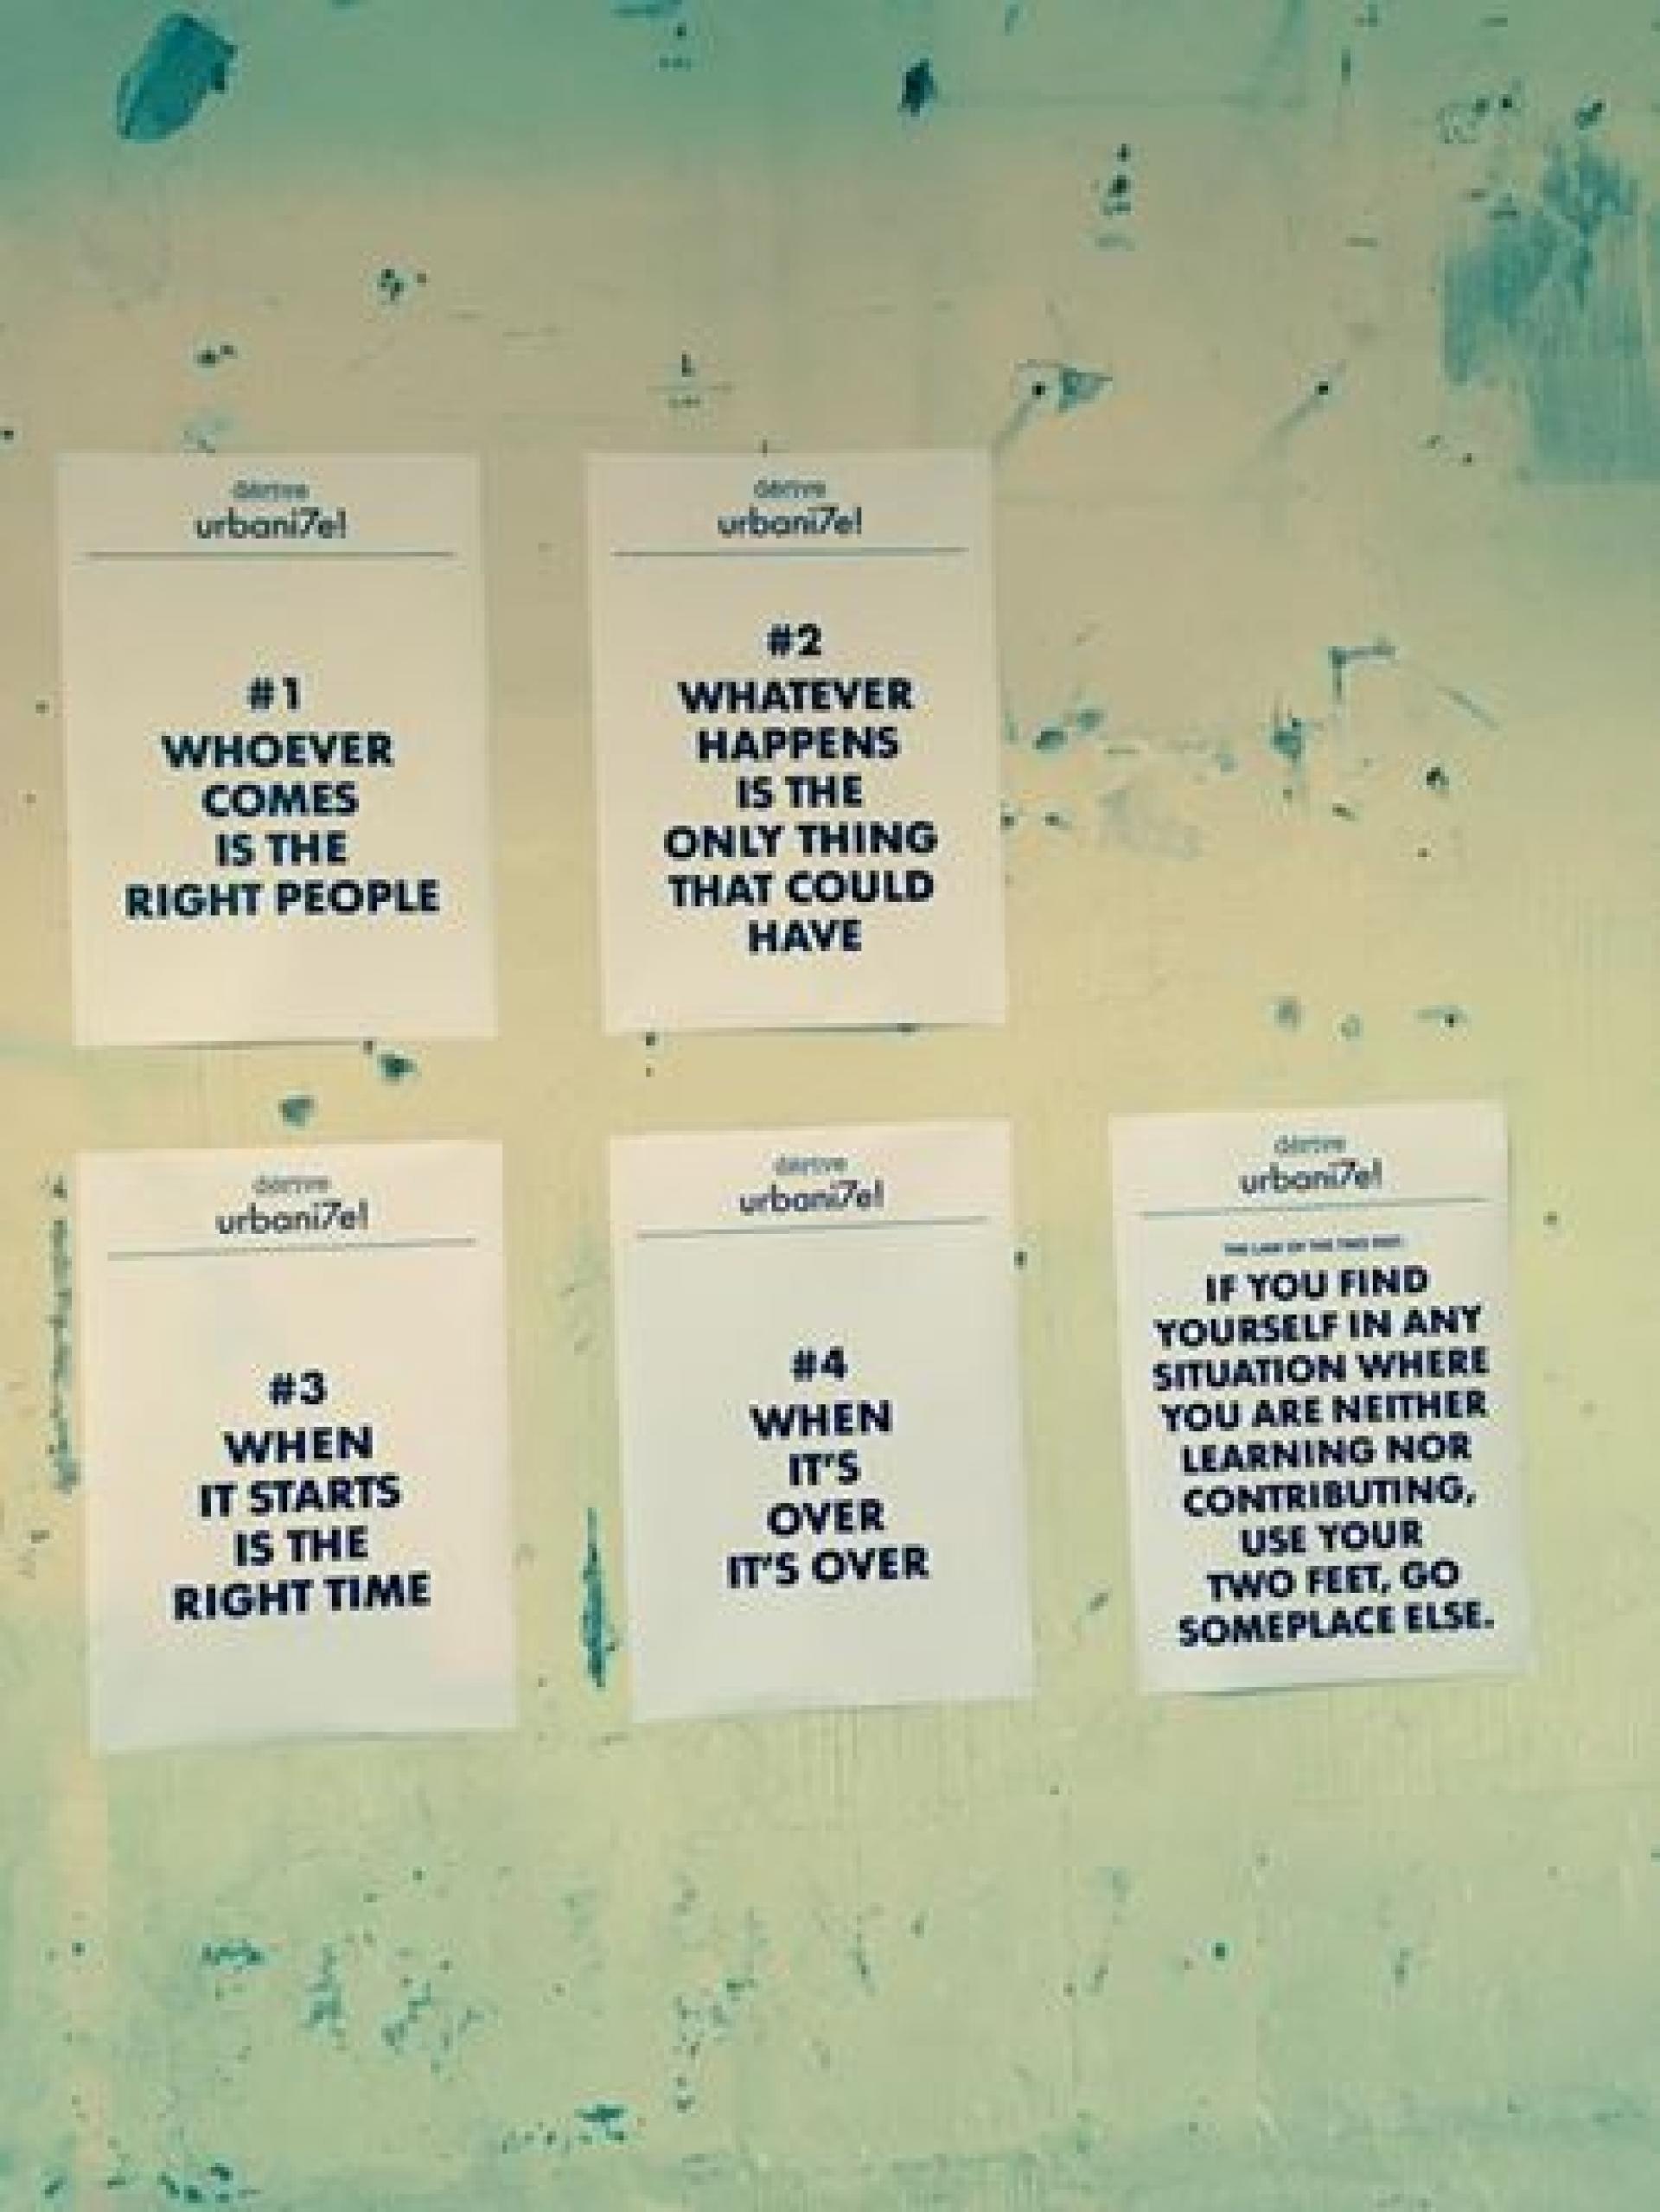 dérive
urbani7e!
#1
WHOEVER
COMES
IS THE
RIGHT PEOPLE
dérive
urbani7e!
#2
WHATEVER
HAPPENS
IS THE
ONLY THING
THAT COULD
HAVE
dérive
urbani7e!
#3
WHEN
IT STARTS
IS THE
RIGHT TIME
dérive
urbani7e!
#4
WHEN
IT'S
OVER
IT'S OVER
dérive
urbani7e!
THE LAW OF THE TWO FEET:
IF YOU FIND
YOURSELF IN ANY
SITUATION WHERE
YOU ARE NEITHER
LEARNING NOR
CONTRIBUTING,
USE YOUR
TWO FEET, GO
SOMEPLACE ELSE.